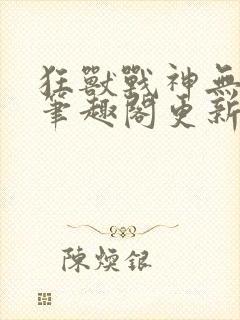 狂獸戰神無
筆趣閣更新
陳煥銀